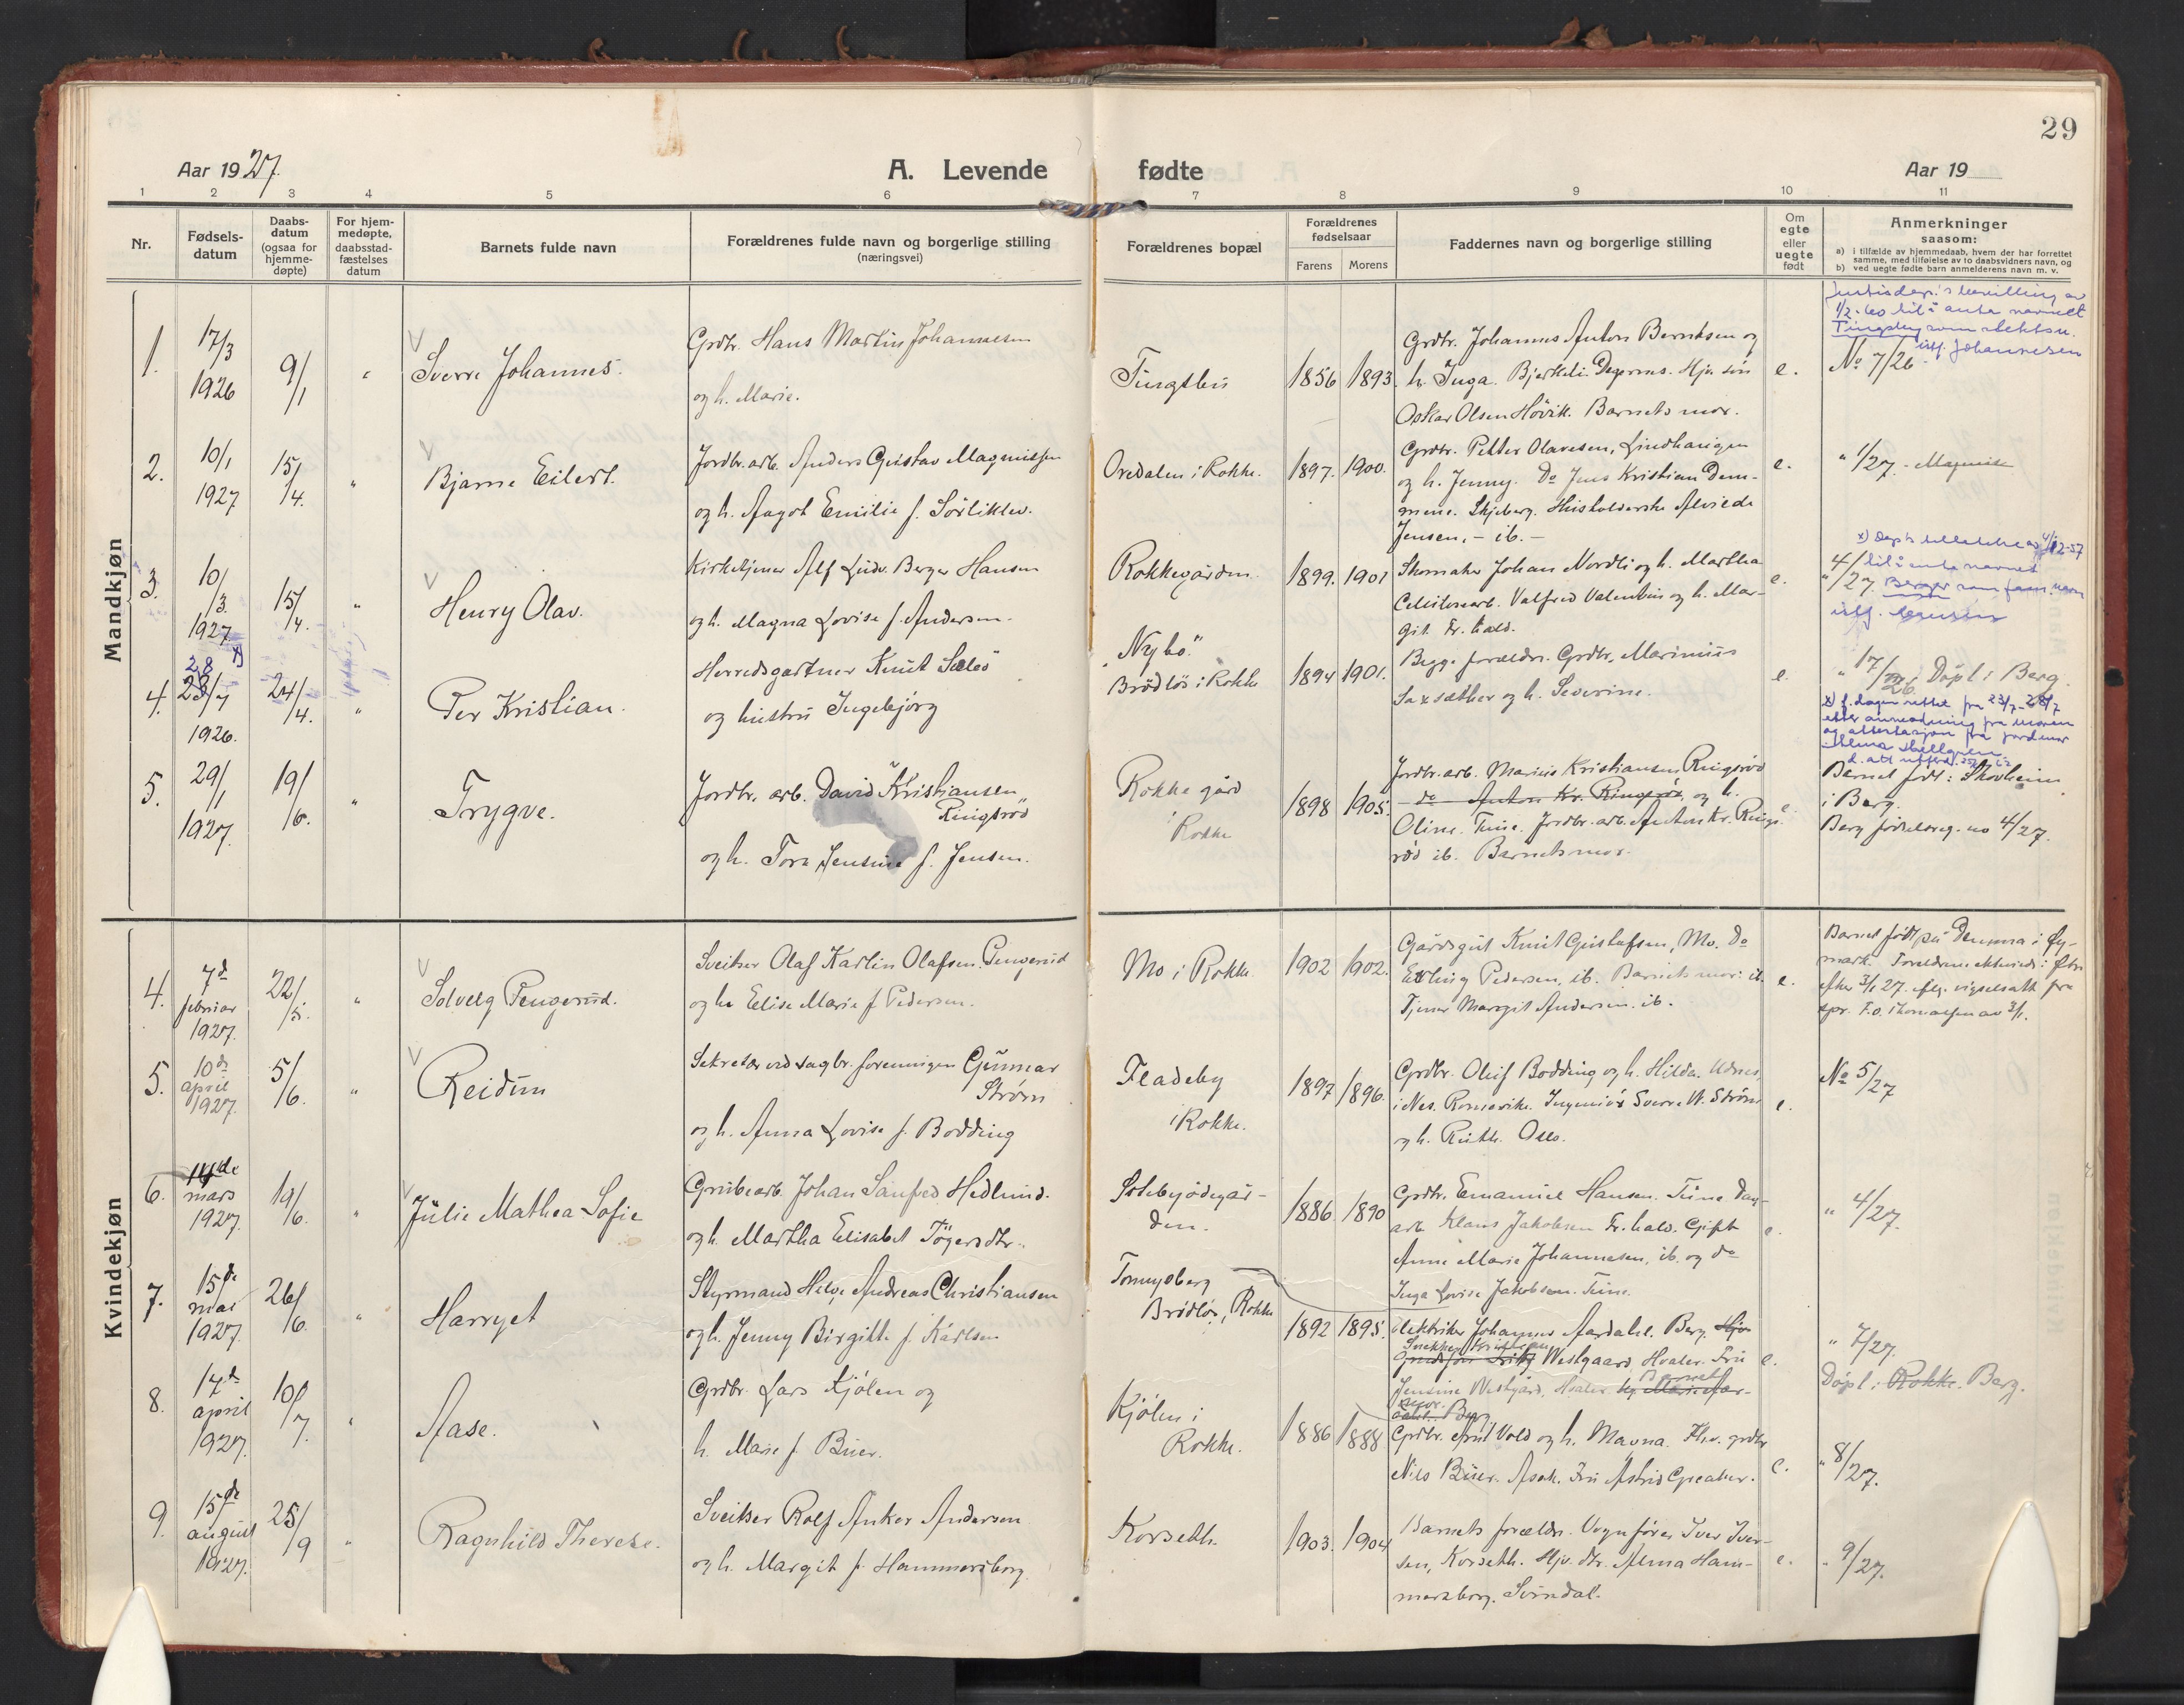 29
Aar 1927.
A. Levende
fødte
Aar 19
1 2 3 4 5 6 7 8 9 10 11
Nr.
Fødsels-
datum
Daabs-
datum
(ogsaa for
hjemme-
døpte)
For hjem-
medøpte,
daabsstad-
fæstelses
datum
Barnets fulde navn
Forældrenes fulde navn og borgerlige stilling
(næringsvei)
Forældrenes bopæl
Forældrenes
fødselsaar
Farens Morens
Faddernes navn og borgerlige stilling
Om
egte
eller
uegte
født
Anmerkninger
saasom:
a) i tilfælde av hjemmedaab, hvem der har forrettet
samme, med tilføielse av to daabsvidners navn, og
b) ved uegte fødte barn anmelderens navn m. v.
Mandkjøn
1. 17/3 1926 9/1 "
Sverre Johannes.
Grdbr. Hans Martin Johannesen
og h. Marie.
1856 1893.
Grdbr. Johannes Anton Berntsen og
h. Inga.
Oskar Olsen Høvik. Barnets mor.
e.
1/2-60 til å anta navnet
Johannesen
No 7/26
2. 10/1 1927 15/4. "
Bjarne Eilert.
Jordbr. arb. Anders Gustav Magnussen
og h. Aagot Emilie f. Sørliklev.
Oredalen i Rokke.
1897. 1900.
Grdbr. Petter Olavesen,
og h. Jenny. Do Jens Kristian Dem-
mene. Skjeberg.
Jensen, - ib. -
e.
" 1/27.
3. 10/3. 1927. 15/4. "
Henry Olav.
Kirketjener Alf Ludv. Berger Hansen
og h. Magna Lovise f. Andersen.
Rokkegården.
1899. 1901
Skomaker Johan Nordli og h. Martha
Valfred Valentin og h. Mar-
git. Fr.hald.
e.
til å anta navnet
Berger som fam.navn
" 4/27.
4. 28/7 1926. 24/4. "
Per Kristian.
Herredsgartner Knut Sæløs
og hustru Ingebjørg
"Nybø"
Brødløs i Rokke
1894 1901.
Begge forældre. Grdbr. Marinius
Saxsæther og h. Severine.
e.
" 17/26. Døpt i Berg.
x) f.dagen rettet fra 23/7 - 28/7
etter anmodning fra moren
og attestasjon fra jordmor
5. 29/1 1927. 19/6. "
Trygve.
Jordbr. arb. David Kristiansen
Ringsrød
og h. Tora Jensine f. Jensen.
Rokke gård
i Rokke
1898 1905.
Jordbr. arb. Marius Kristiansen Ringsrød
- do Anton Kr. Ringsrød, og h.
Oline. Tune. Jordbr. arb. Anton Kr. Rings-
rød ib. Barnets mor.
e.
Barnet født i Skovheim
i Berg.
Berg fødselsreg. no 4/27.
Kvindekjøn
4. 7de februar 1927. 22/5. "
Solveig Pengerud.
Sveitser Olaf Karlin Olafsen Pengerud
og h. Elise Marie f. Pedersen.
Mo i Rokke.
1902 1902.
Gårdsgut Knut Gustafsen, Mo. Do
Erling Pedersen, ib. Barnets mor: ib.
Tjener Margit Andersen. ib.
e.
Barnet født på Demma i Øy-
mark.
5. 10de april 1927. 5/6. "
Reidun
Sekretær ved sagbr. foreningen Gunnar
Strøm
og h. Anna Lovise f. Bodding
Fladeby
i Rokke.
1897 1896.
Grdbr. Oluf Bodding og h. Hilda. Udnes,
i Nes. Romerike. Ingeniør Sverre W. Strøm
og h. Ruth. Oslo.
e.
No 5/27
6. 14de mars 1927. 19/6. "
Julie Mathea Sofie
Grubearb. Johan Sanfred Hedlund.
og h. Martha Elisabet Tøgersdtr.
1886. 1890
Grdbr. Emanuel Hansen. Tune Dag-
arb. Klaus Jakobsen Fr.hald. Gift
Anne Marie Johannesen, ib. og do
Inga Lovise Jakobsen. Tune.
e.
" 4/27.
7. 15de mai 1927. 26/6. "
Harryet
Styrmand Helge Andreas Christiansen
og h. Jenny Birgitte f. Karlsen
Tonnysberg
Brødløs, Rokke
1892 1895.
Elektriker Johannes Aardahl. Berg.
Westgaard, Hvaler. Fru
Jensine Westgård, Hvaler. Barnets
mor.
e.
" 7/27.
Døpt i Rokke. Berg.
8. 17de april 1927. 10/7. "
Aase.
Grdbr. Lars Kjølen og
h. Marie f. Buer.
Kjølen i
Rokke.
1886 1888
Grdbr. Vold og h. Magna. Fhv. grdbr
Nils Buer. Asak. Fru Astrid Greaker.
e.
" 8/27.
9. 15de august 1927. 25/9 "
Ragnhild Therese.
Sveitser Rolf Anker Andersen
og h. Margit f. Hammersborg.
Korseth.
1903. 1904
Barnets forældre. Vognfører Iver Iver-
sen, Korseth. Hjv. dtr. Alma Ham-
mersborg. Svindal.
e.
" 9/27.